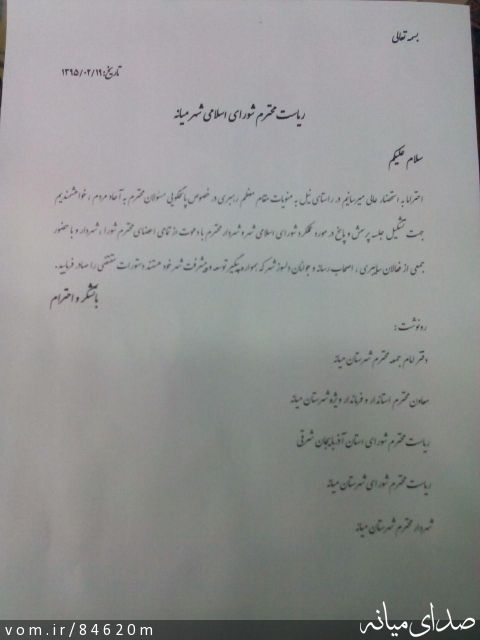 بسمه تعالی
تاریخ: ۱۳۹۵/۰۲/۱۹
ریاست محترم شورای اسلامی شهر میانه
سلام علیکم
احتراما به استحضار عالی میرسانیم در راستای نیل به منویات مقام معظم رهبری در خصوص پاسخگویی مسئولان محترم به آحاد مردم ، خواهشمندیم
جهت تشکیل جلسه پرسش و پاسخ در مورد عملکرد شورای اسلامی شهر و شهردار محترم با دعوت از تمامی اعضای محترم شورا ، شهردار و با حضور
جمعی از فعالان سایبری ، اصحاب رسانه و جوانان دلسوز شهر که همواره پیگیر توسعه و پیشرفت شهر خود هستند دستورات مقتضی را صادر فرمایید.
با تشکر و احترام
رونوشت :
دفتر امام جمعه محترم شهرستان میانه
معاون محترم استاندار و فرماندار ویژه شهرستان میانه
ریاست محترم شورای استان آذربایجان شرقی
ریاست محترم شورای شهرستان میانه
شهردار محترم شهرستان میانه
صدای میانه
vom.ir/84620m